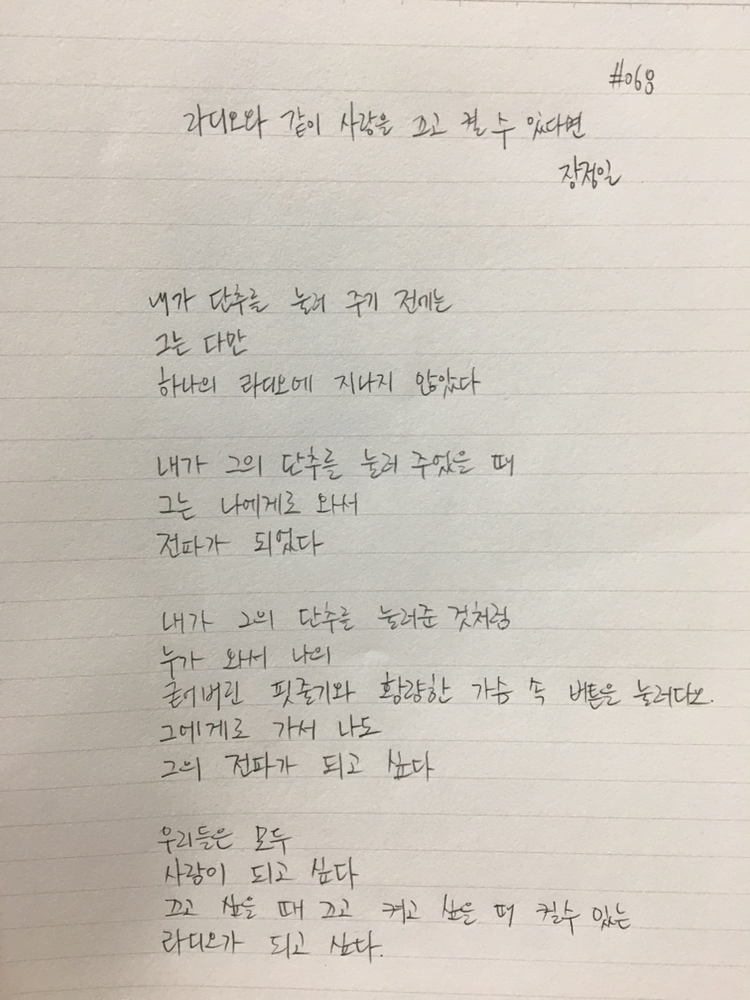 #068
라디오와 같이 사랑을 끄고 켤 수 있다면
장정일
내가 단추를 눌러 주기 전에는
그는 다만
하나의 라디오에 지나지 않았다
내가 그의 단추를 눌러 주었을 때
그는 나에게로 와서
전파가 되었다
내가 그의 단추를 눌러준 것처럼
누가 와서 나의
굳어버린 핏줄기와 황량한 가슴 속 버튼을 눌러다오.
그에게로 가서 나도
그의 전파가 되고 싶다
우리들은 모두
사랑이 되고 싶다
끄고 싶을 때 끄고 켜고 싶을 때 켤수 있는
라디오가 되고 싶다.